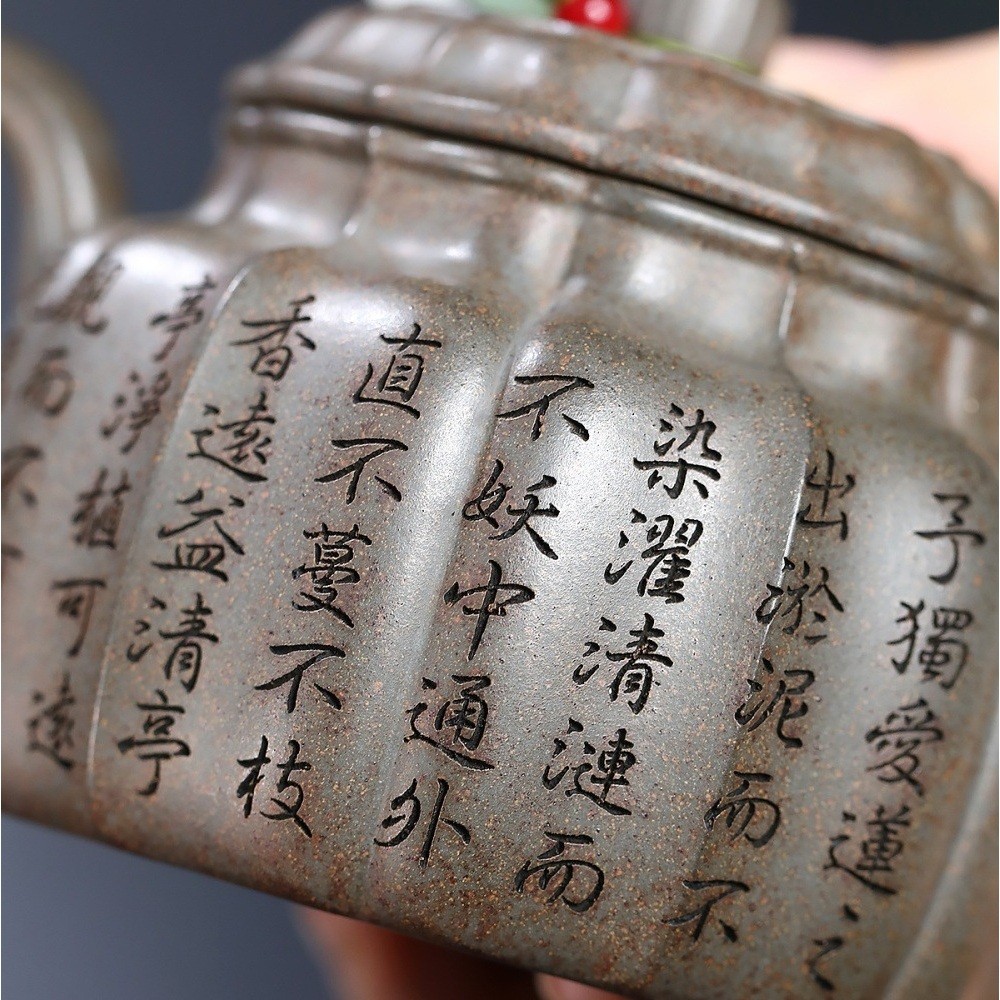 予獨愛蓮之
出淤泥而不
染濯清漣而
不妖中通外
直不蔓不枝
香遠益清亭
亭淨植可遠
觀而不